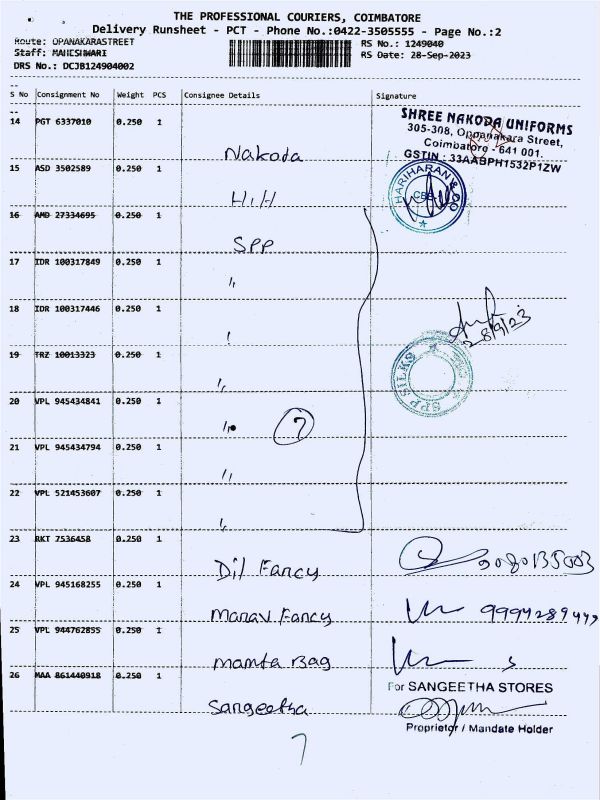 THE PROFESSIONAL COURIERS, COIMBATORE
Delivery Runsheet - PCT - Phone No.:0422-3505555 - Page No.:2
Route: OPANAKARASTREET RS No.: 1249040
Staff: MAHESHWARI RS Date: 28-Sep-2023
DRS No.: DCJB124904002
S No Consignment No Weight PCS Consignee Details Signature
14 PGT 6337010 0.250 1
Nakoda
SHREE NAKODA UNIFORMS
305-308, Oppanakara Street,
Coimbatore - 641 001.
GSTIN : 33AABPH1532P1ZW
15 ASD 3502589 0.250 1
H.H
HARIHARAN & CO
CBE
16 AMD 27334695 0.250 1
SPP
17 IDR 100317849 0.250 1
"
18 IDR 100317446 0.250 1
28/9/23
19 TRZ 10013323 0.250 1
"
SPP SILKS
20 VPL 945434841 0.250 1
" 7
21 VPL 945434794 0.250 1
"
22 VPL 521453607 0.250 1
"
23 RKT 7536458 0.250 1
Dil Fancy
24 VPL 945168255 0.250 1
Manav Fancy
25 VPL 944762855 0.250 1
Mamta Bag
26 MAA 861440918 0.250 1
Sangeetha
For SANGEETHA STORES
Proprietor / Mandate Holder
7